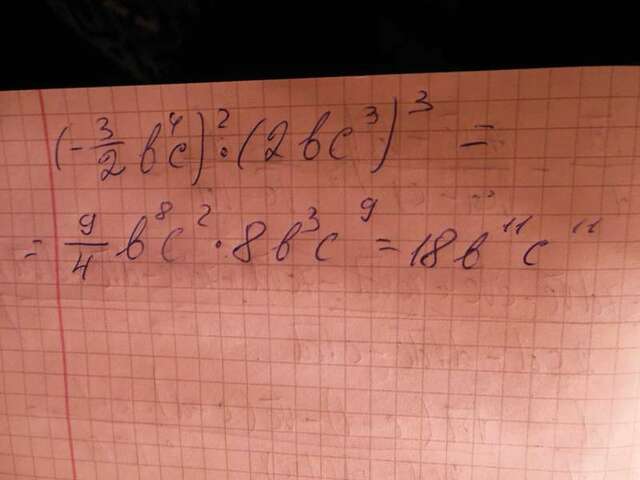 (-3/2 b⁴c)² · (2bc³)³ =
= 9/4 b⁸c² · 8b³c⁹ = 18b¹¹c¹¹